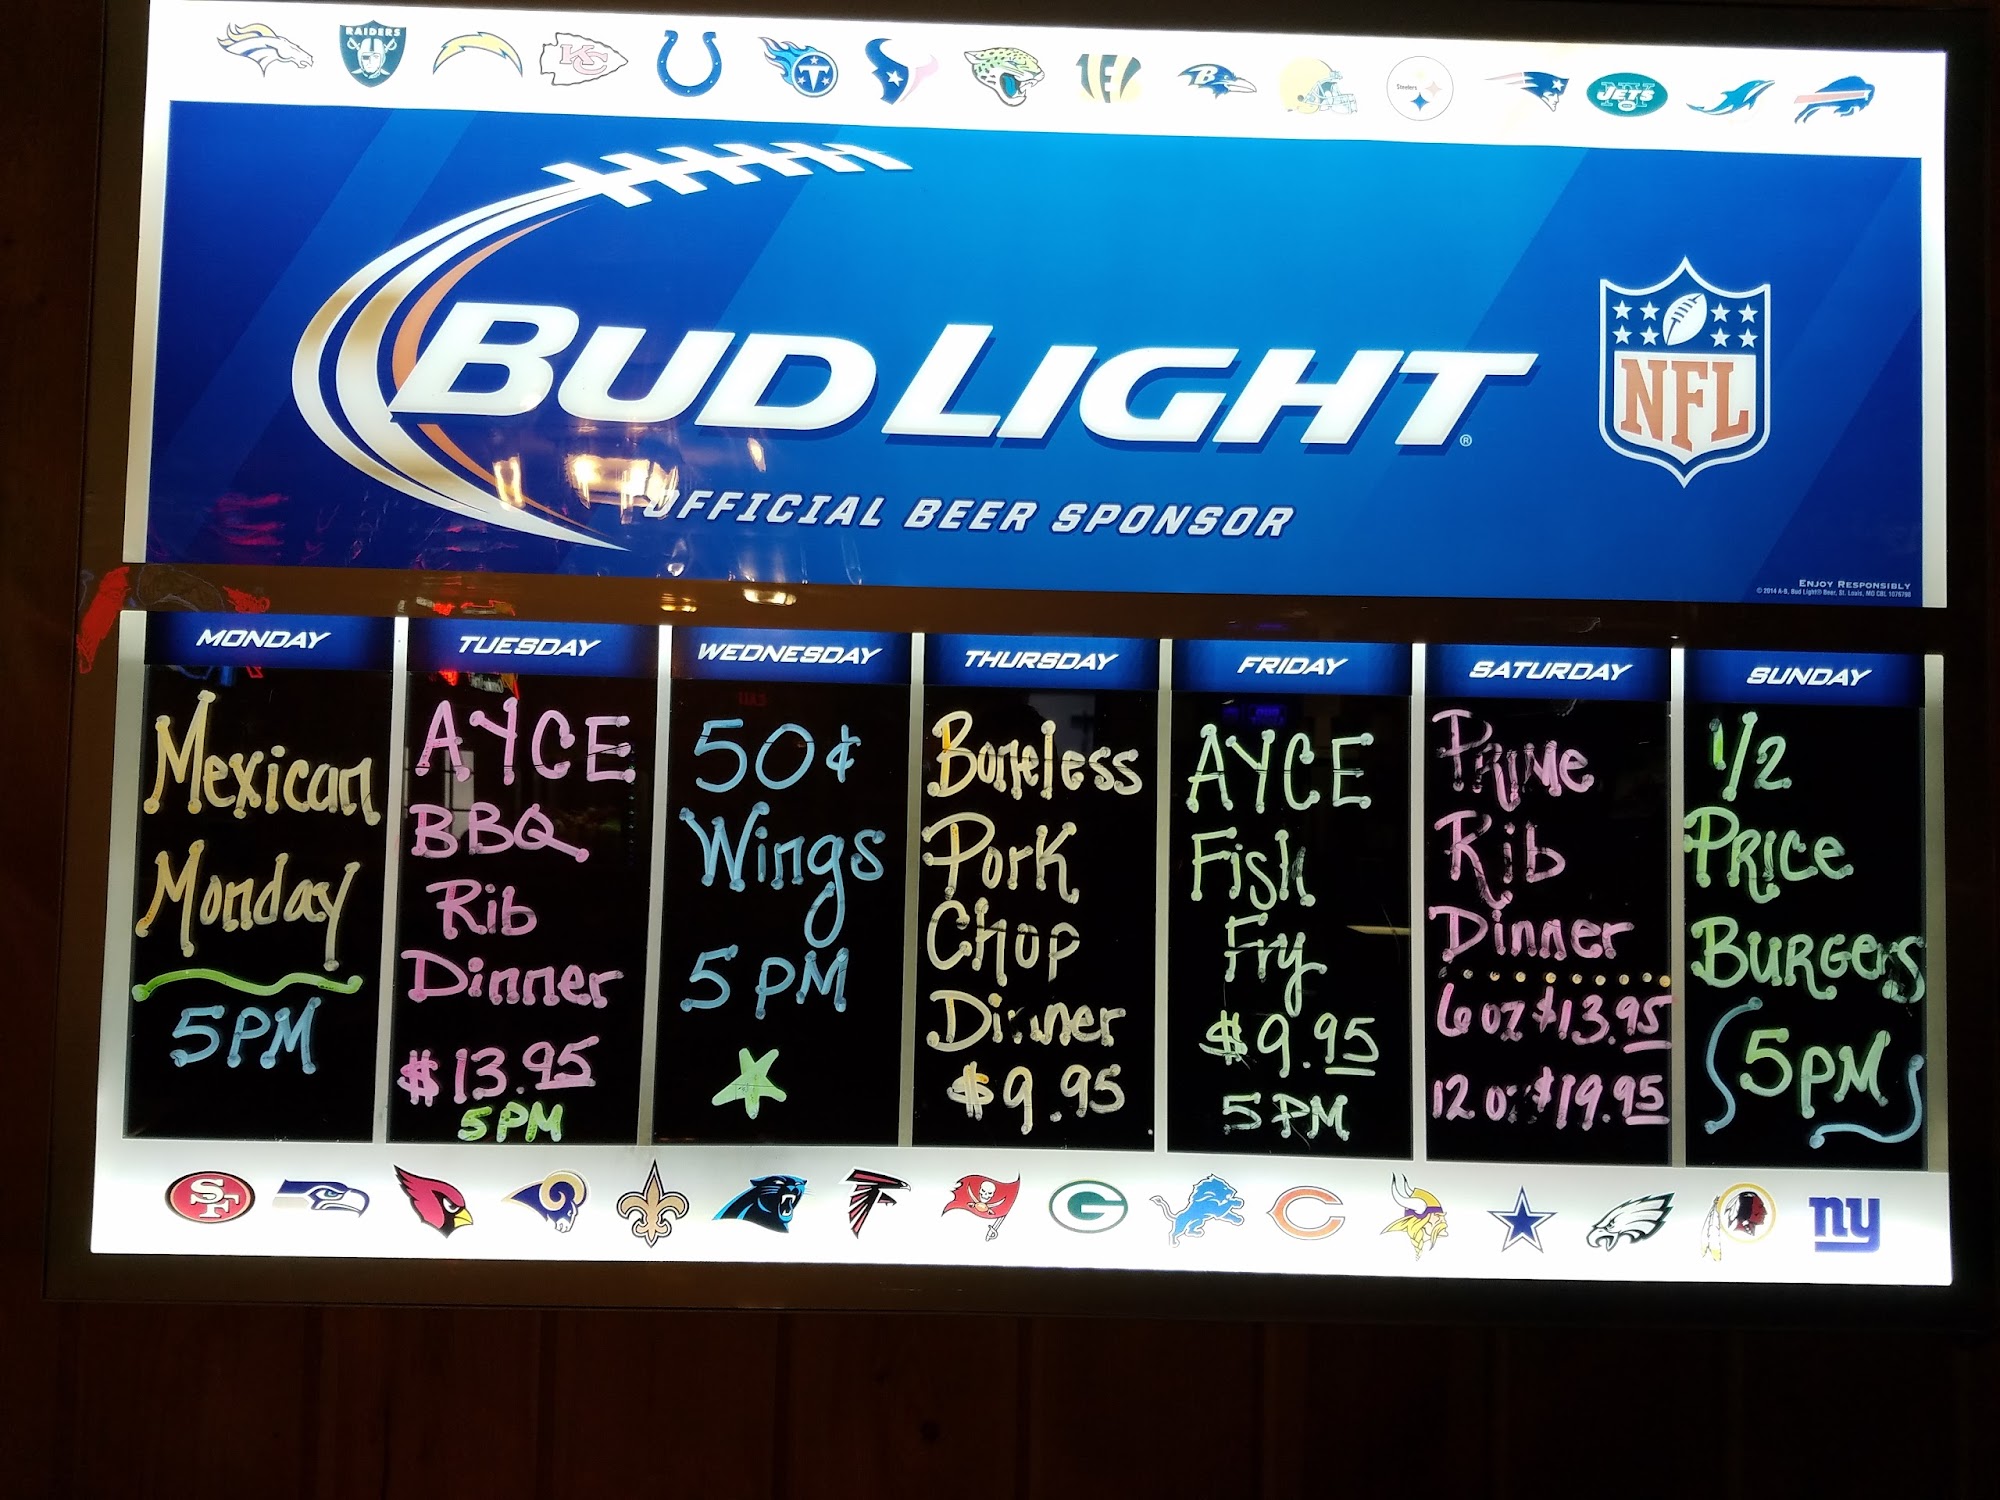 RAIDERS
KC
T
B
Steelers
JETS
BUD LIGHT®
NFL
OFFICIAL BEER SPONSOR
ENJOY RESPONSIBLY
© 2014 A-B, Bud Light® Beer, St. Louis, MO
MONDAY
Mexican
Monday
5PM
TUESDAY
AYCE
BBQ
Rib
Dinner
$13.95
5PM
WEDNESDAY
50¢
Wings
5PM
THURSDAY
Boneless
Pork
Chop
Dinner
$9.95
FRIDAY
AYCE
Fish
Fry
$9.95
5PM
SATURDAY
PRIME
Rib
Dinner
6 oz $13.95
12 oz $19.95
SUNDAY
1/2
PRICE
BURGERS
5PM
SF
G
C
ny